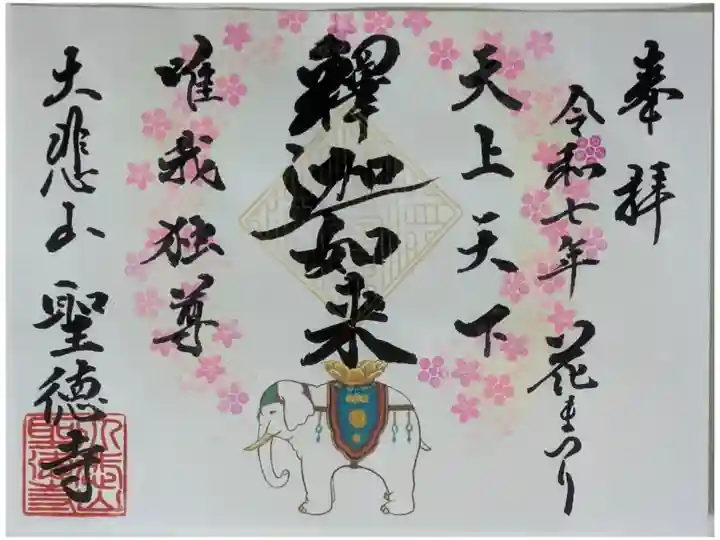 奉拝
令和七年 花まつり
天上天下
釋迦如来
唯我独尊
大悲山 聖徳寺